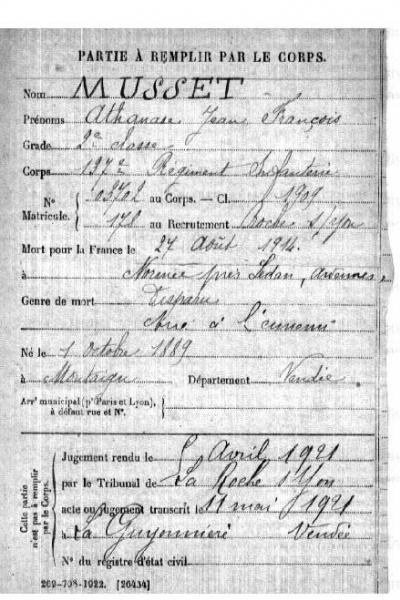 PARTIE À REMPLIR PAR LE CORPS.
Nom MUSSET
Prénoms Athanase Jean François
Grade 2e classe
Corps 137e Régiment Infanterie
No 03702 au Corps. — Cl. 1909
Matricule. 178 au Recrutement Roche s/yon
Mort pour la France le 27 Août 1914.
à près Sedan, Ardennes
Genre de mort Disparu
à l'ennemi
Né le 1 octobre 1889
à Montaigu Département Vendée
Arrt municipal (pr Paris et Lyon), à défaut rue et No.
Cette partie n'est pas à remplir par le Corps.
Jugement rendu le Avril 1921
par le Tribunal de La Roche s/Yon
acte ou jugement transcrit le 11 mai 1921
à La Guyonnière Vendée
No du registre d'état civil
269-708-1922. [26434]